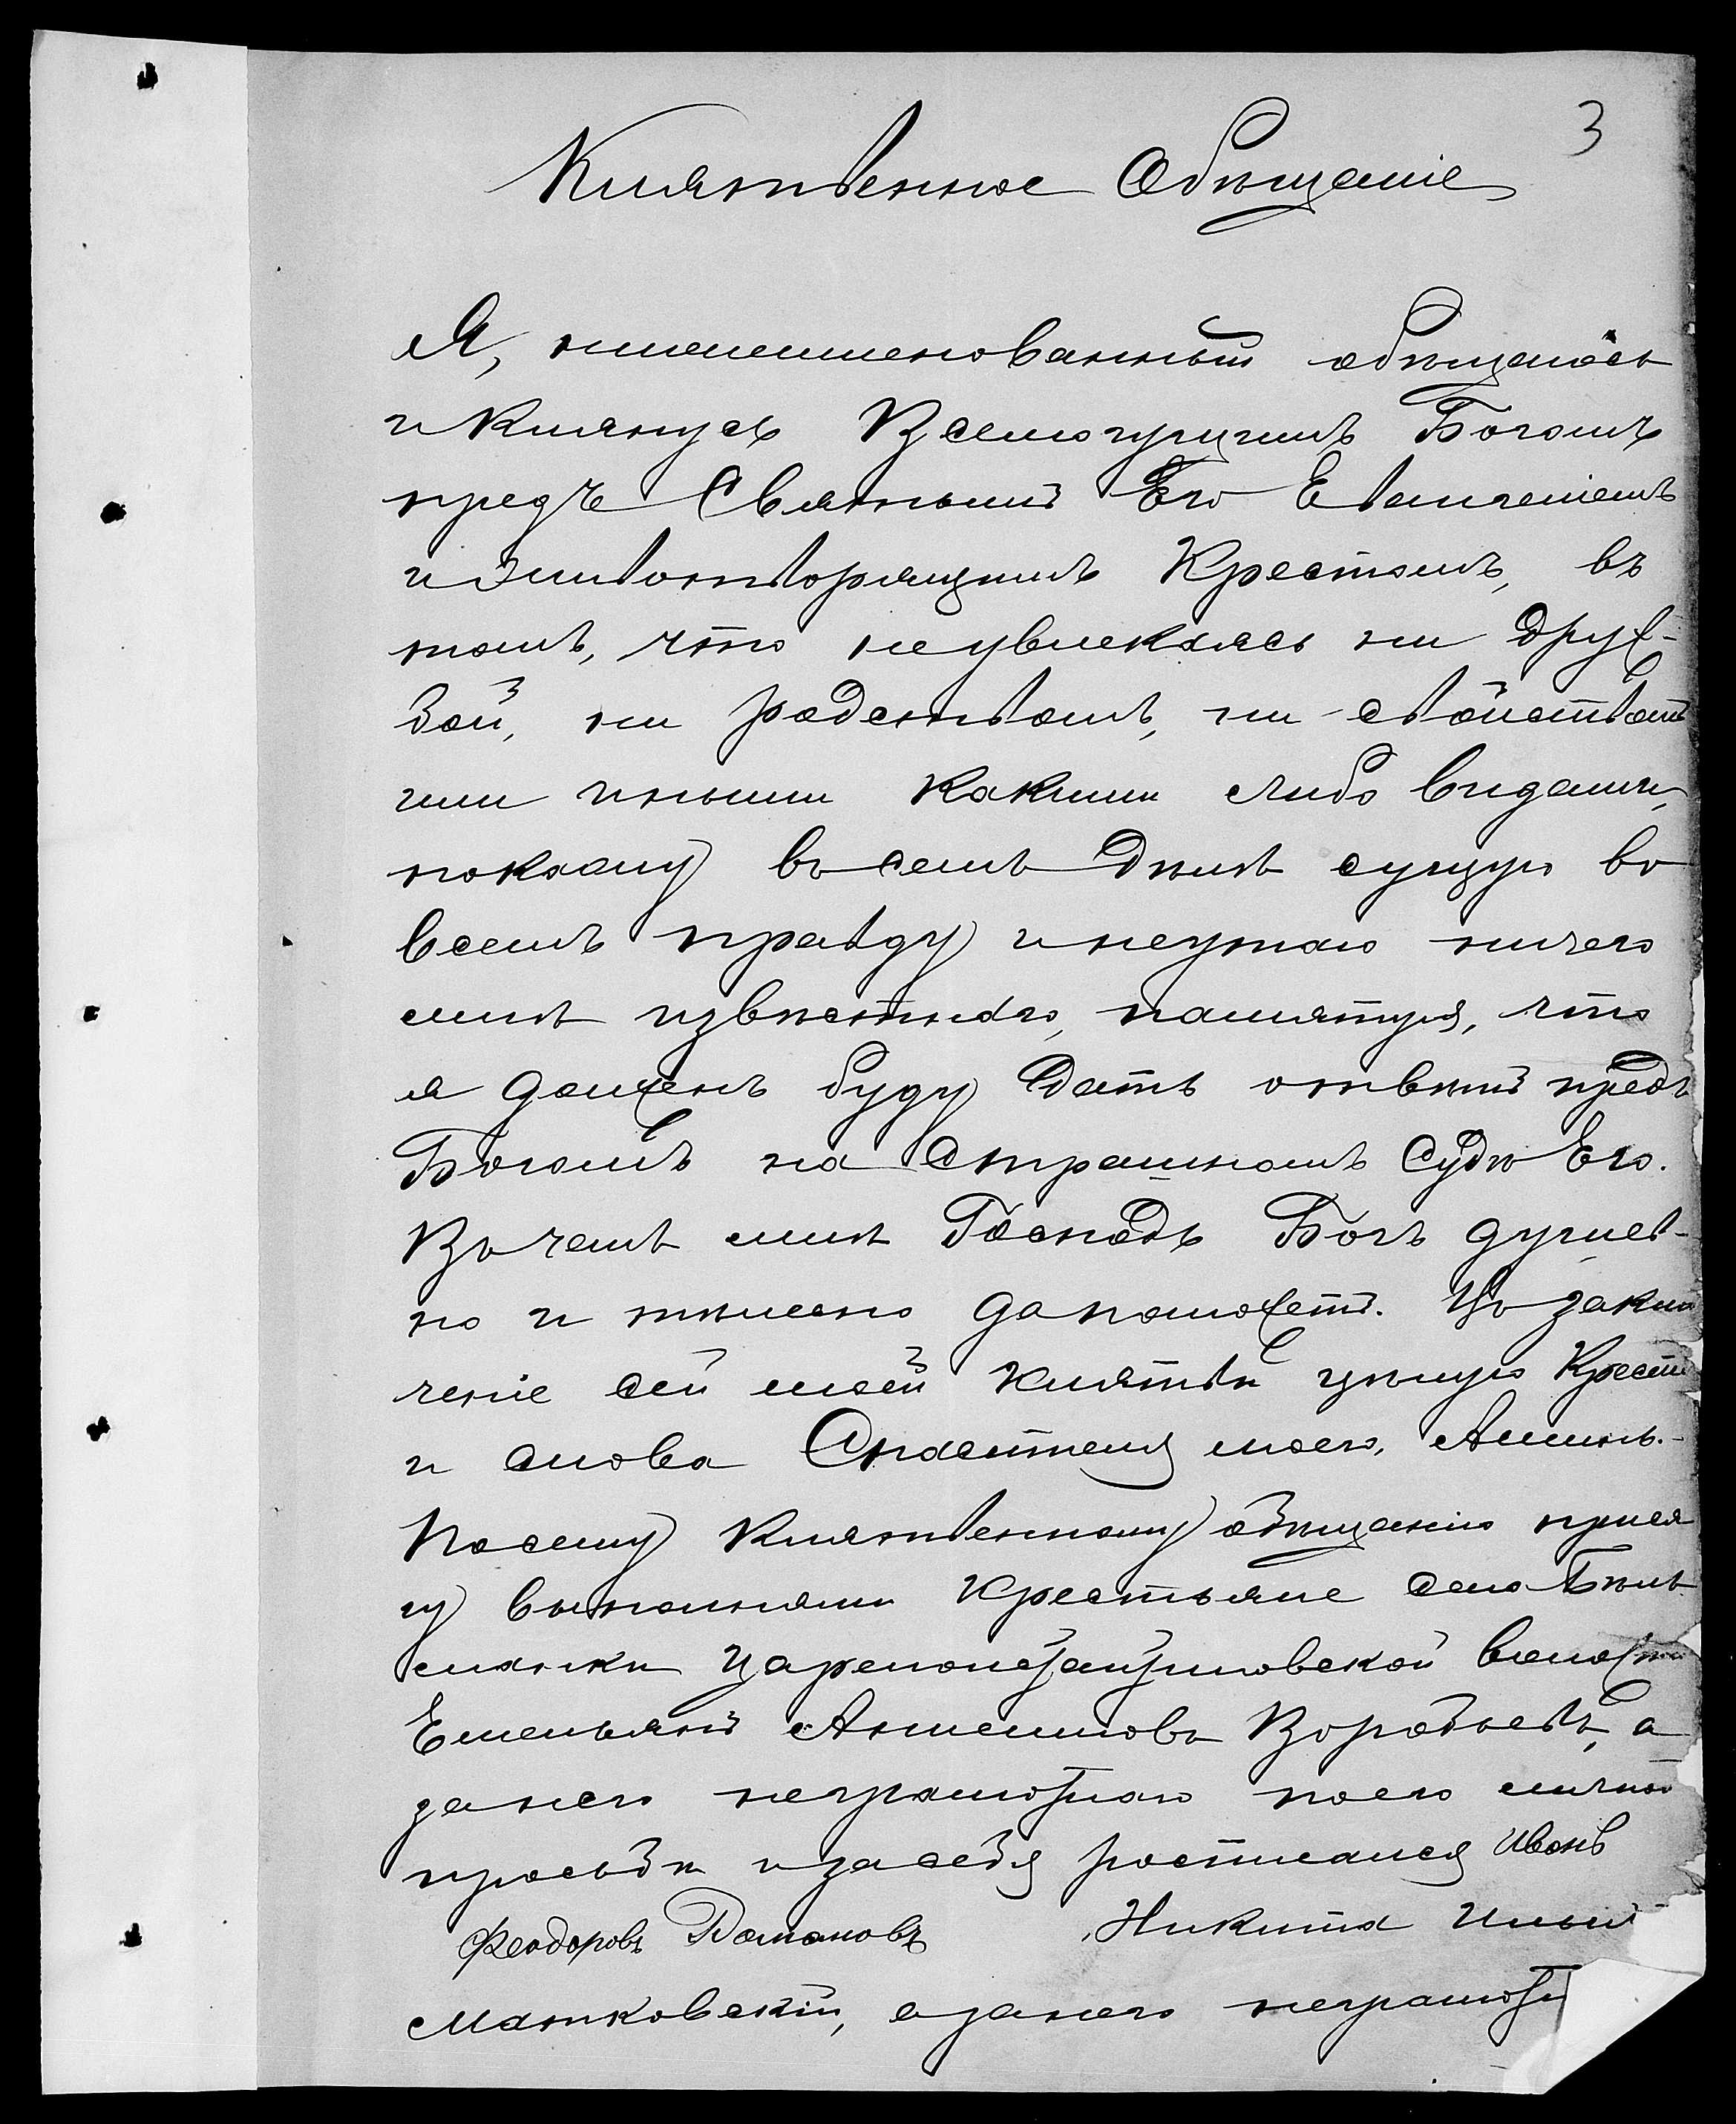 3
Клятвенное Обѣщаніе
Я, нижеименованный обѣщаюсь
и Клянусь Всемогущимъ Богомъ
предъ Святымъ Его Евангеліемъ
и Животворящимъ Крестомъ, въ
томъ, что не увлекаясь ни друж-
бой, ни родствомъ, ни свойствомъ
или иными какими либо видами,
покажу въ семъ дѣлѣ сущую во
всемъ правду и неутаю ничего
мнѣ извѣстнаго, памятуя, что
я долженъ буду дать отвѣтъ предъ
Богомъ на Страшномъ Судѣ Его.
Въ чемъ мнѣ Господь Богъ душев-
но и тѣлесно да поможетъ. Въ заклю
ченіе сей моей клятвы цѣлую Крестъ
и слова Спасителя моего. Аминь.-
По сему Клятвенному обѣщанію прися
гу выполняли Крестьяне села
волости
Емельянъ Воробьевъ, а
за него неграмотнаго по его личной
просьбѣ и за себя росписался Иванъ
Феодоровъ Никита
Матковскій, а за него неграмотн